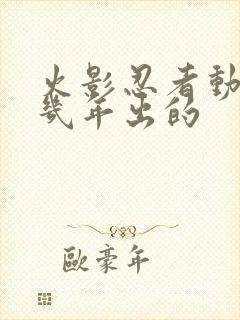 火影忍者動
幾年出的
歐豪年